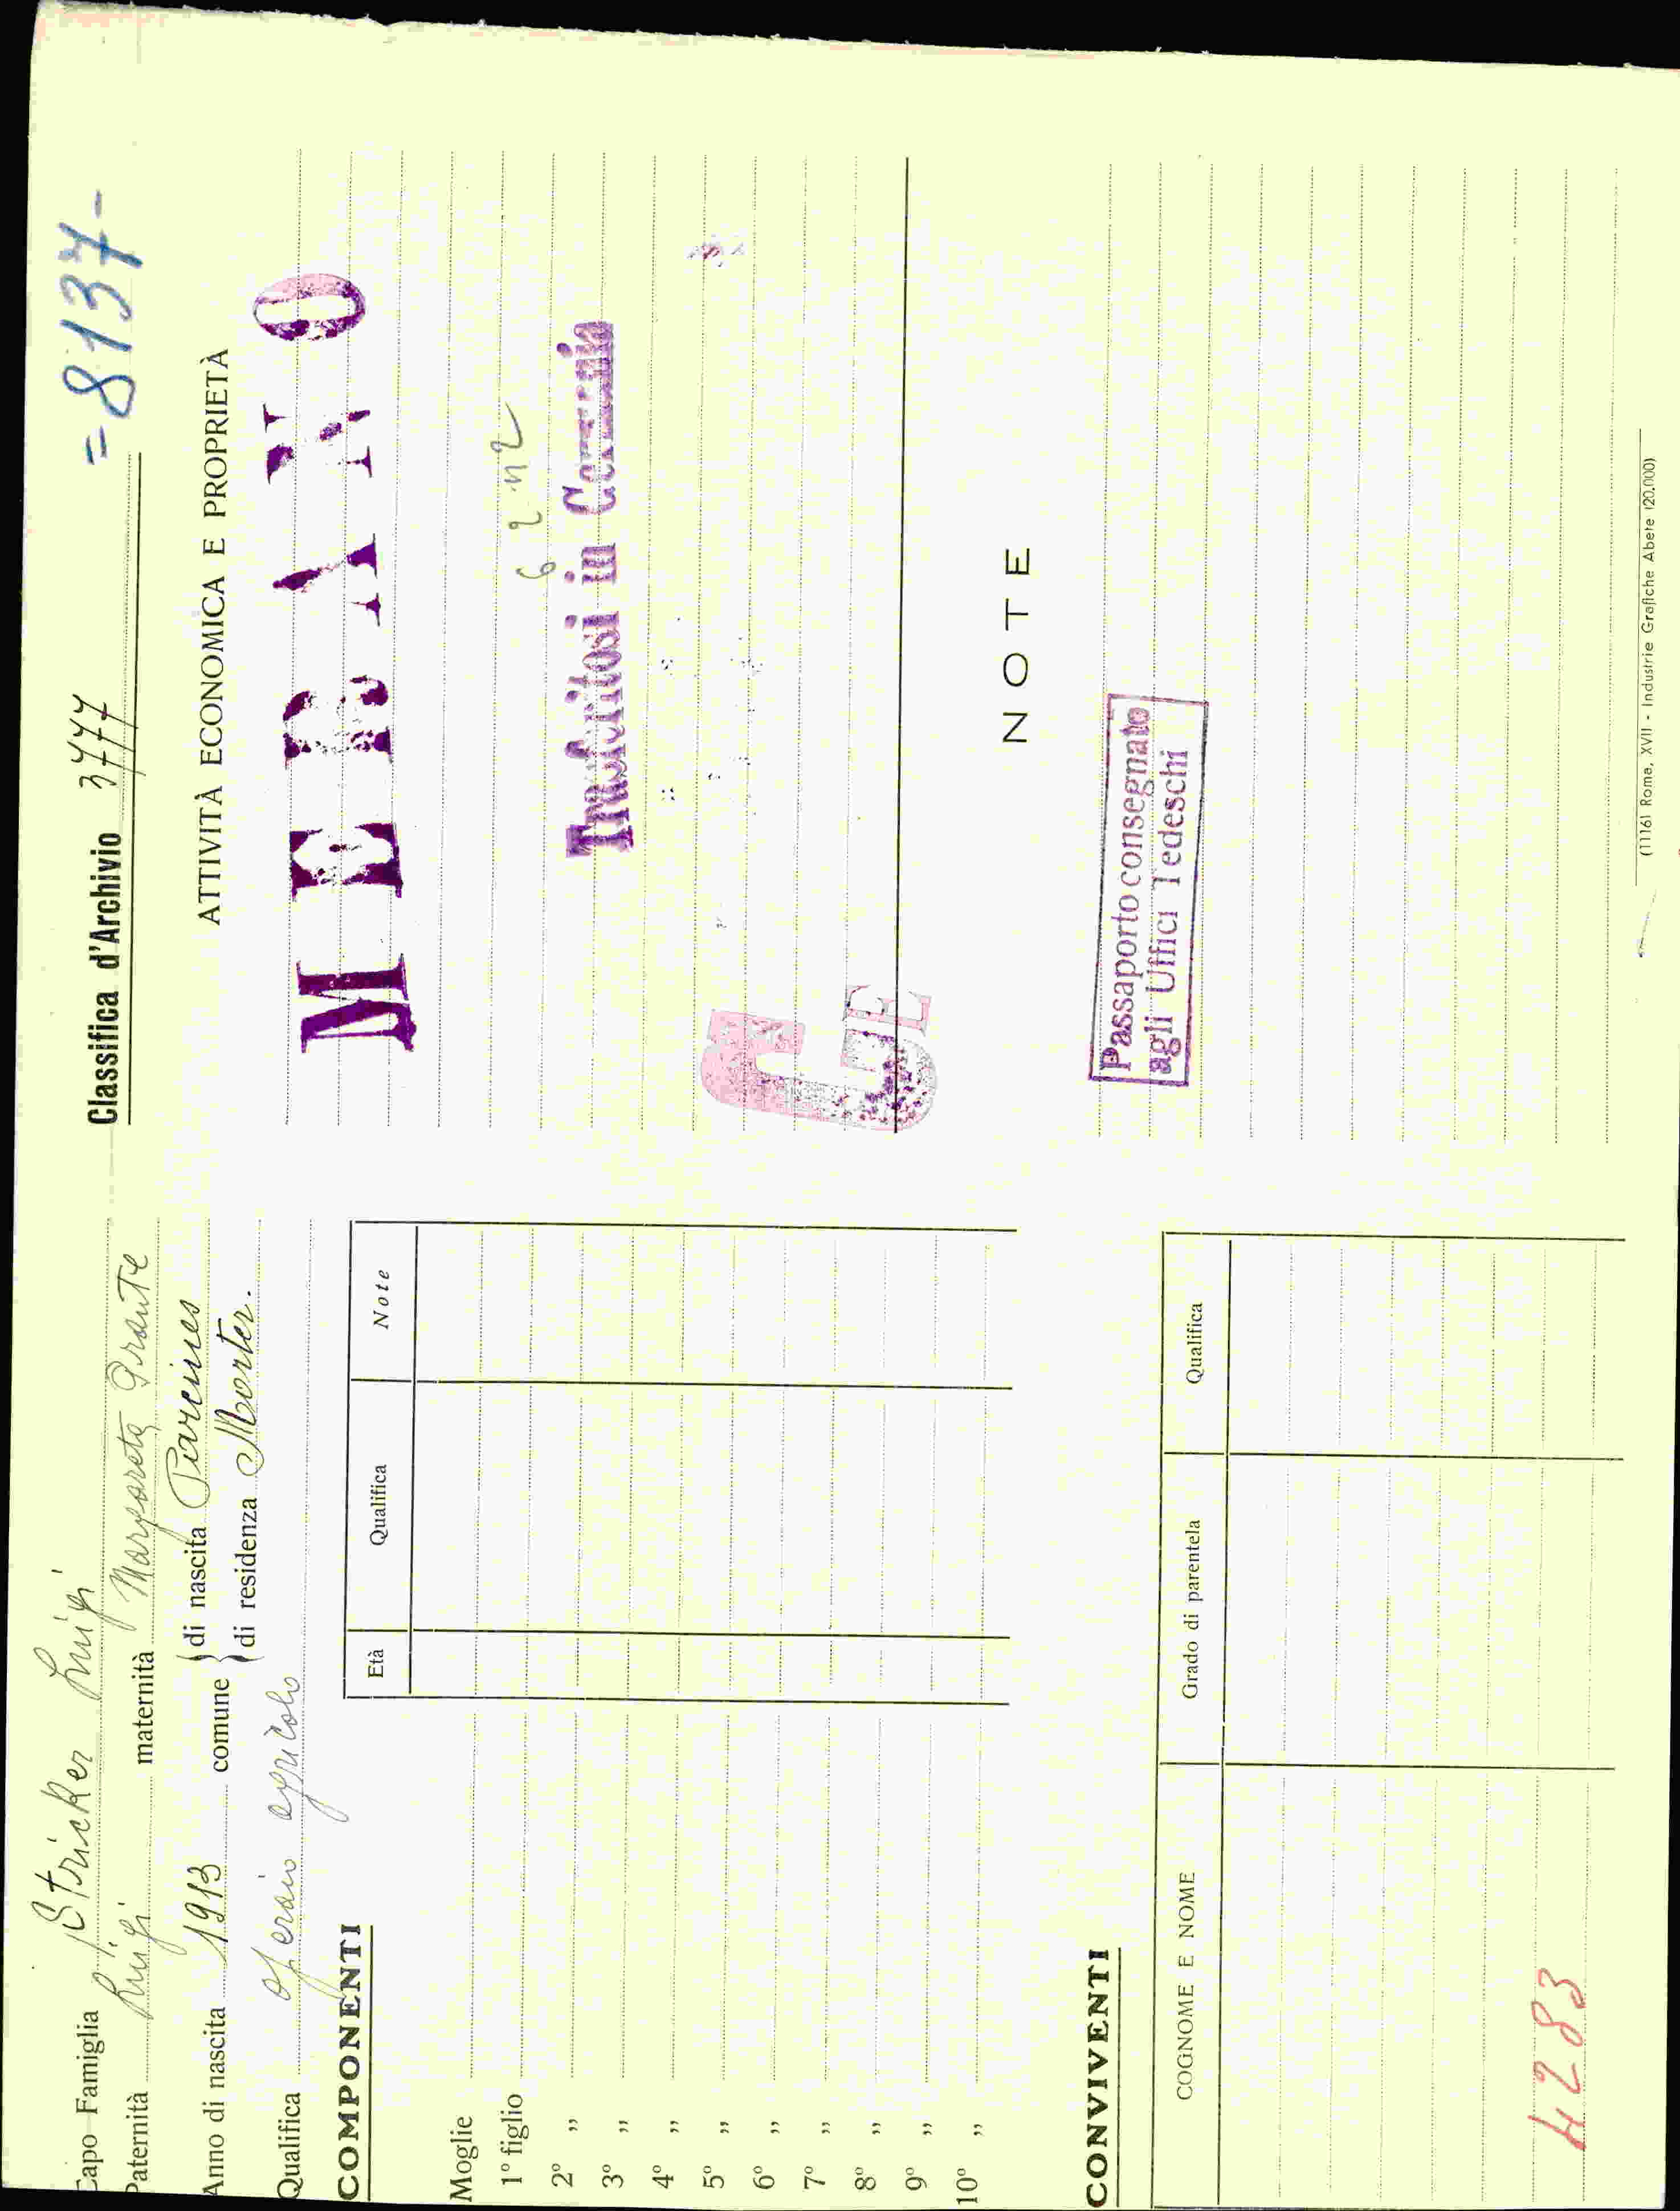 Capo Famiglia Stricker Luigi
Paternità Luigi maternità Margareta
Anno di nascita 1913 comune di nascita Parcines
di residenza Morter.
Qualifica operaio agricolo
COMPONENTI
Età Qualifica Note
Moglie
1º figlio
2º „
3º „
4º „
5º „
6º „
7º „
8º „
9º „
10º „
CONVIVENTI
COGNOME E NOME Grado di parentela Qualifica
4283
Classifica d'Archivio 3777 =8137-
ATTIVITÀ ECONOMICA E PROPRIETÀ
MERANO
Trasferitosi in Germania
GE
NOTE
Passaporto consegnato
agli Uffici Tedeschi
(11161 Roma, XVII - Industrie Grafiche Abete (20.000)